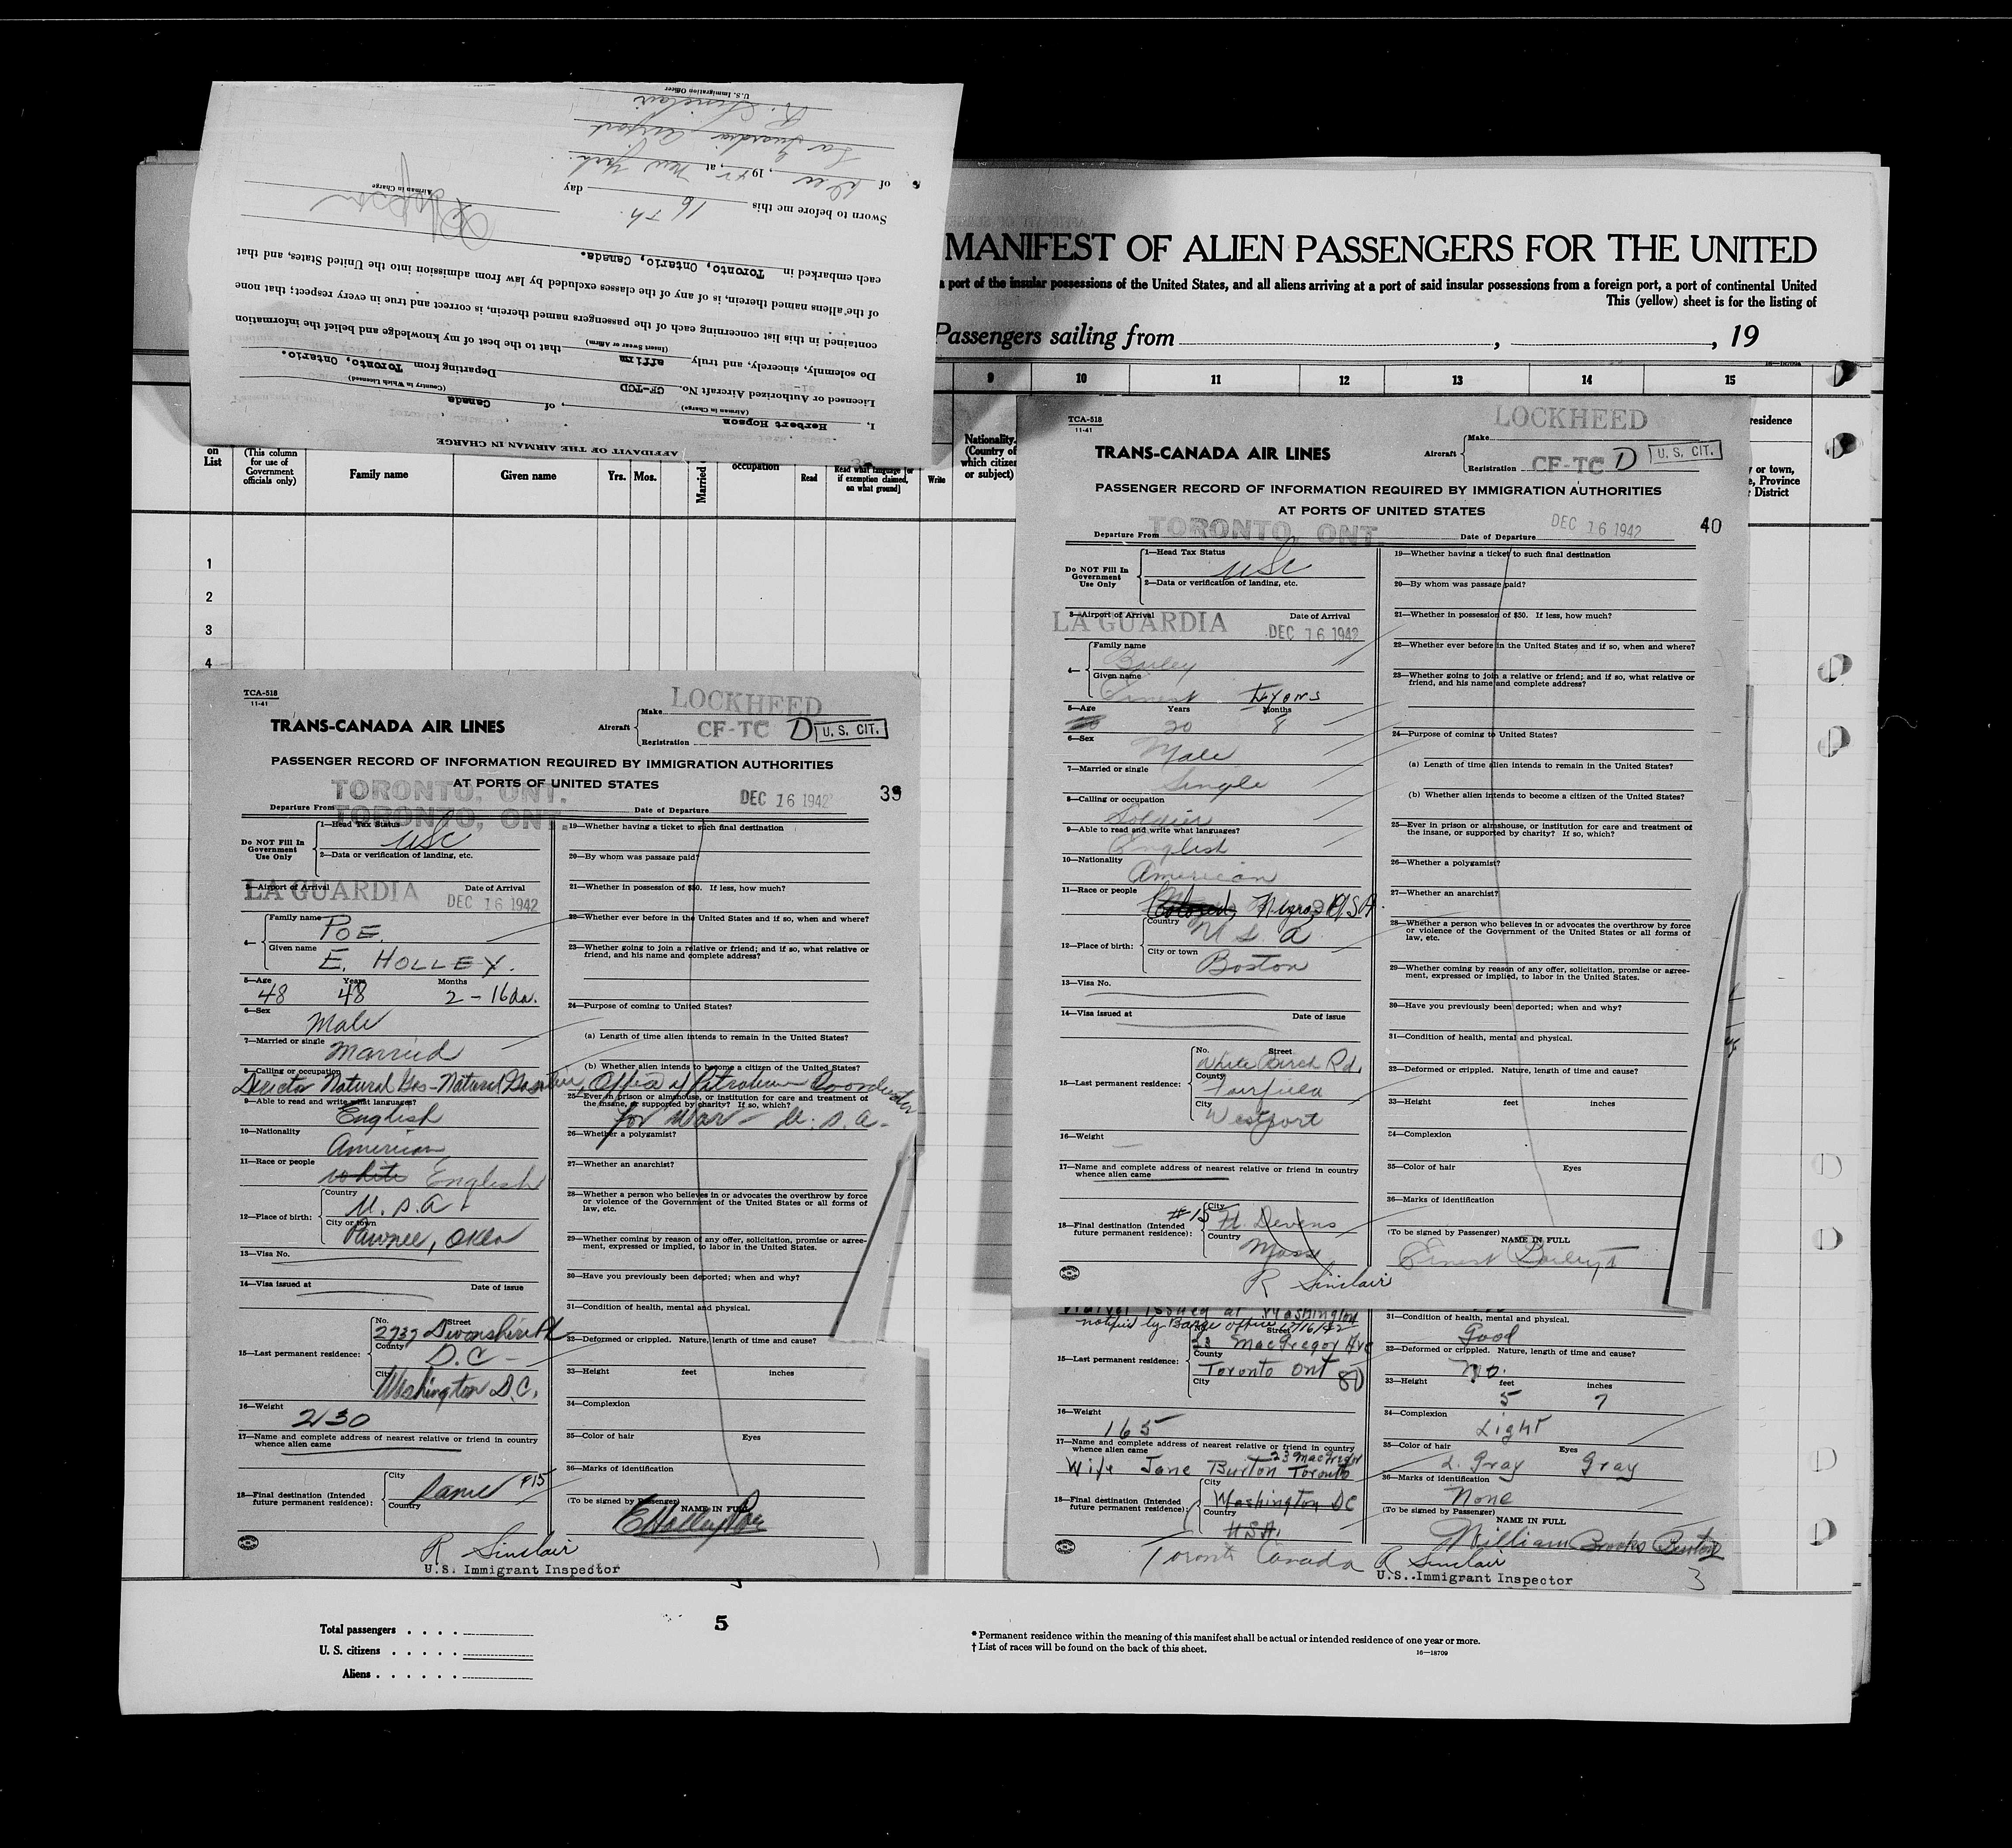 AFFIDAVIT OF THE AIRMAN IN CHARGE
I, Herbert Hopson
(Airman in Charge)
, of Canada
(Country in Which Licensed)
Licensed or Authorized Aircraft No. CF-TCD Departing from Toronto, Ontario.
Do solemnly, sincerely, and truly affirm that to the best of my knowledge and belief the information
(Insert Swear or Affirm)
contained in this list concerning each of the passengers named therein, is correct and true in every respect; that none
of the aliens named therein, is of any of the classes excluded by law from admission into the United States, and that
each embarked in Toronto, Ontario, Canada.
Hopson
Airman in Charge
Sworn to before me this 16th. day
of Dec, 1942, at New York.
La Guardia Airport
R. Sinclair
U.S. Immigration Officer
MANIFEST OF ALIEN PASSENGERS FOR THE UNITED
a port of the insular possessions of the United States, and all aliens arriving at a port of said insular possessions from a foreign port, a port of continental United
This (yellow) sheet is for the listing of
Passengers sailing from , , 19
9 10 11 12 13 14 15
on
List
(This column
for use of
Government
officials only)
Family name
Given name
Yrs. Mos.
Married
occupation
Read
Read what language [or
if exemption claimed,
on what ground]
Write
Nationality.
(Country of
which citizen
or subject)
residence
y or town,
e, Province
District
1
2
3
4
TCA-518
11-41
TRANS-CANADA AIR LINES
Aircraft
Make LOCKHEED
Registration CF-TC D
U. S. CIT.
PASSENGER RECORD OF INFORMATION REQUIRED BY IMMIGRATION AUTHORITIES
AT PORTS OF UNITED STATES
39
Departure From TORONTO, ONT.
TORONTO, ONT.
Date of Departure DEC 16 1942
Do NOT Fill In
Government
Use Only
1—Head Tax Status
USC
2—Data or verification of landing, etc.
3—Airport of Arrival LA GUARDIA
Date of Arrival DEC 16 1942
4— Family name POE
Given name E. HOLLEY.
5—Age 48 Years 48 Months 2 - 16 da.
6—Sex Male
7—Married or single Married
8—Calling or occupation
Director Natural Gas - Natural Gasoline, Office of Petroleum Coordinator
for War - U.S.A.
9—Able to read and write what languages?
English
10—Nationality American
11—Race or people white English
12—Place of birth: Country U.S.A.
City or town Pawnee, Okla
13—Visa No.
14—Visa issued at Date of issue
15—Last permanent residence: No. Street
2737 Devonshire Pl
County D.C.
City Washington D.C.
16—Weight 230
17—Name and complete address of nearest relative or friend in country
whence alien came
18—Final destination (Intended
future permanent residence):
City Same #15
Country
19—Whether having a ticket to such final destination
20—By whom was passage paid?
21—Whether in possession of $50. If less, how much?
22—Whether ever before in the United States and if so, when and where?
23—Whether going to join a relative or friend; and if so, what relative or
friend, and his name and complete address?
24—Purpose of coming to United States?
(a) Length of time alien intends to remain in the United States?
(b) Whether alien intends to become a citizen of the United States?
25—Ever in prison or almshouse, or institution for care and treatment of
the insane, or supported by charity? If so, which?
26—Whether a polygamist?
27—Whether an anarchist?
28—Whether a person who believes in or advocates the overthrow by force
or violence of the Government of the United States or all forms of
law, etc.
29—Whether coming by reason of any offer, solicitation, promise or agree-
ment, expressed or implied, to labor in the United States.
30—Have you previously been deported; when and why?
31—Condition of health, mental and physical.
32—Deformed or crippled. Nature, length of time and cause?
33—Height feet inches
34—Complexion
35—Color of hair Eyes
36—Marks of identification
(To be signed by Passenger) NAME IN FULL
E Holley Poe
R Sinclair
U.S. Immigrant Inspector
TCA-518
11-41
TRANS-CANADA AIR LINES
Aircraft
Make LOCKHEED
Registration CF-TC D
U. S. CIT.
PASSENGER RECORD OF INFORMATION REQUIRED BY IMMIGRATION AUTHORITIES
AT PORTS OF UNITED STATES
40
Departure From TORONTO, ONT.
Date of Departure DEC 16 1942
Do NOT Fill In
Government
Use Only
1—Head Tax Status
USC
2—Data or verification of landing, etc.
3—Airport of Arrival LA GUARDIA
Date of Arrival DEC 16 1942
4— Family name
Given name Ernest Lyons
5—Age Years 20 Months 8
6—Sex Male
7—Married or single Single
8—Calling or occupation
Soldier
9—Able to read and write what languages?
English
10—Nationality American
11—Race or people Colored, Negro
12—Place of birth: Country U S A
City or town Boston
13—Visa No.
14—Visa issued at Date of issue
15—Last permanent residence: No. Street
White Birch Rd.
County Fairfield
City Westport
16—Weight
17—Name and complete address of nearest relative or friend in country
whence alien came
18—Final destination (Intended
future permanent residence):
#15
City Ft. Devens
Country Mass
19—Whether having a ticket to such final destination
20—By whom was passage paid?
21—Whether in possession of $50. If less, how much?
22—Whether ever before in the United States and if so, when and where?
23—Whether going to join a relative or friend; and if so, what relative or
friend, and his name and complete address?
24—Purpose of coming to United States?
(a) Length of time alien intends to remain in the United States?
(b) Whether alien intends to become a citizen of the United States?
25—Ever in prison or almshouse, or institution for care and treatment of
the insane, or supported by charity? If so, which?
26—Whether a polygamist?
27—Whether an anarchist?
28—Whether a person who believes in or advocates the overthrow by force
or violence of the Government of the United States or all forms of
law, etc.
29—Whether coming by reason of any offer, solicitation, promise or agree-
ment, expressed or implied, to labor in the United States.
30—Have you previously been deported; when and why?
31—Condition of health, mental and physical.
32—Deformed or crippled. Nature, length of time and cause?
33—Height feet inches
34—Complexion
35—Color of hair Eyes
36—Marks of identification
(To be signed by Passenger) NAME IN FULL
Ernest
R Sinclair
Waiver issued at Washington
notified by Barge office 12/16/42
15—Last permanent residence: Street
23 MacGregor Ave
County
Toronto Ont 80
City
16—Weight 165
17—Name and complete address of nearest relative or friend in country
whence alien came 23 MacGregor
Wife Jane Burton Toronto
18—Final destination (Intended
future permanent residence):
City Washington DC
Country USA.
Toronto Canada
31—Condition of health, mental and physical.
Good
32—Deformed or crippled. Nature, length of time and cause?
No.
33—Height feet 5 inches 7
34—Complexion Light
35—Color of hair L. Gray Eyes Gray
36—Marks of identification
None
(To be signed by Passenger) NAME IN FULL
William Brooks Burton
R Sinclair
U.S. Immigrant Inspector
3
Total passengers . . . .
U. S. citizens . . . . .
Aliens . . . . . .
5
* Permanent residence within the meaning of this manifest shall be actual or intended residence of one year or more.
† List of races will be found on the back of this sheet.
16—18709